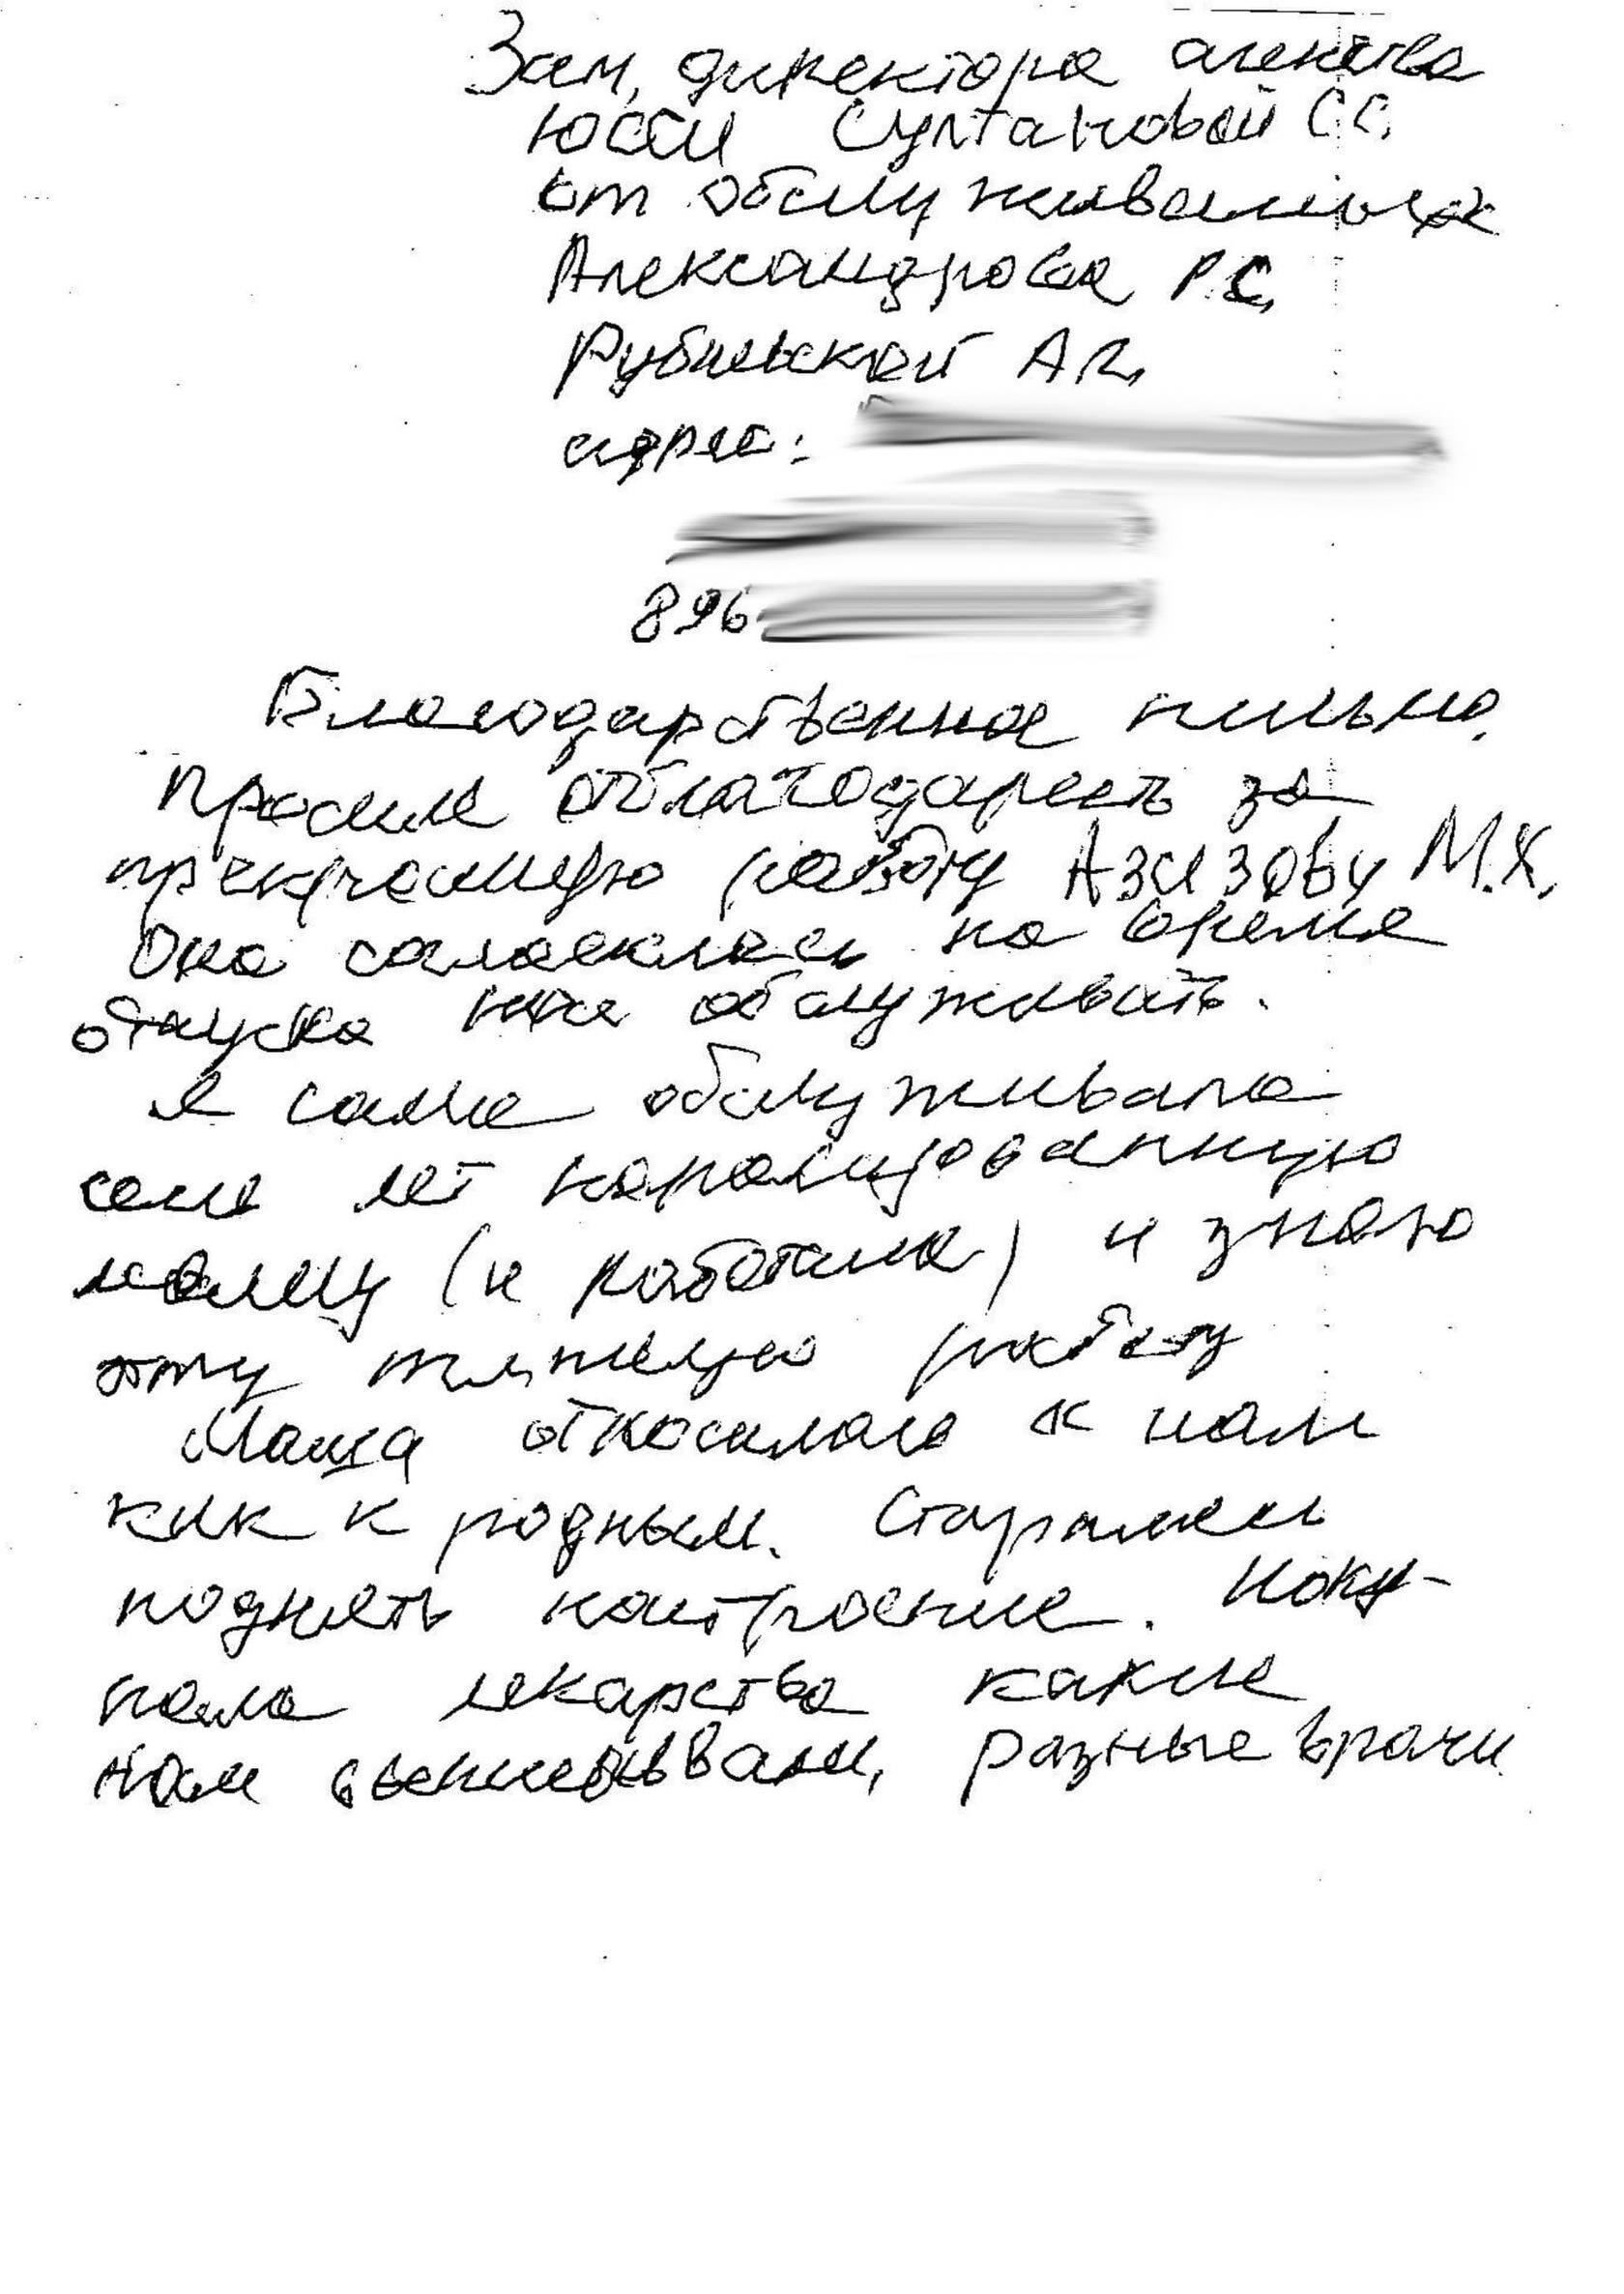 Зам. директора агенства
ЮССИ Султановой С.С.
от обслуживаемых
Александрова Р.С.
Рубильской А.Я.
адрес:
896
Благодарственное письмо.
Просим отблагодарить за
прекрасную работу Азизову М.Х.
Она согласилась на время
отпуска нас обслуживать.
Я сама обслуживала
семь лет парализованную
маму (и работала) и знаю
эту тяжелую работу
Маша относилась к нам
как к родным. Старалась
поднять настроение. Поку-
пала лекарства какие
нам выписывали, разные врачи